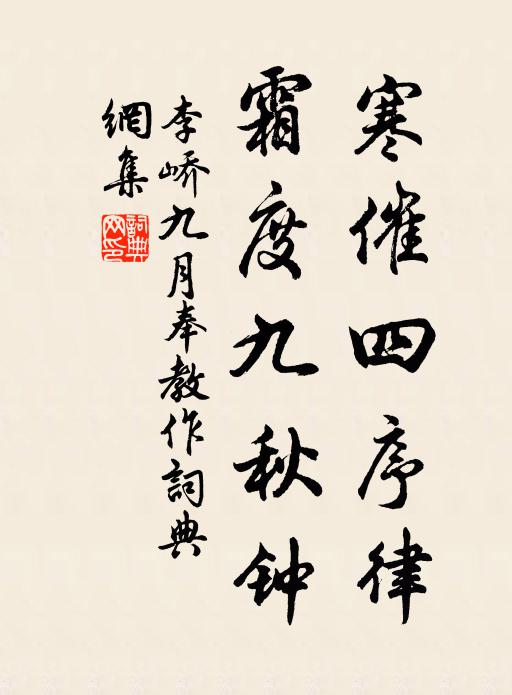 寒催四序律
霜度九秋钟
李峤九月奉教作詞典
網集
詞典
网印